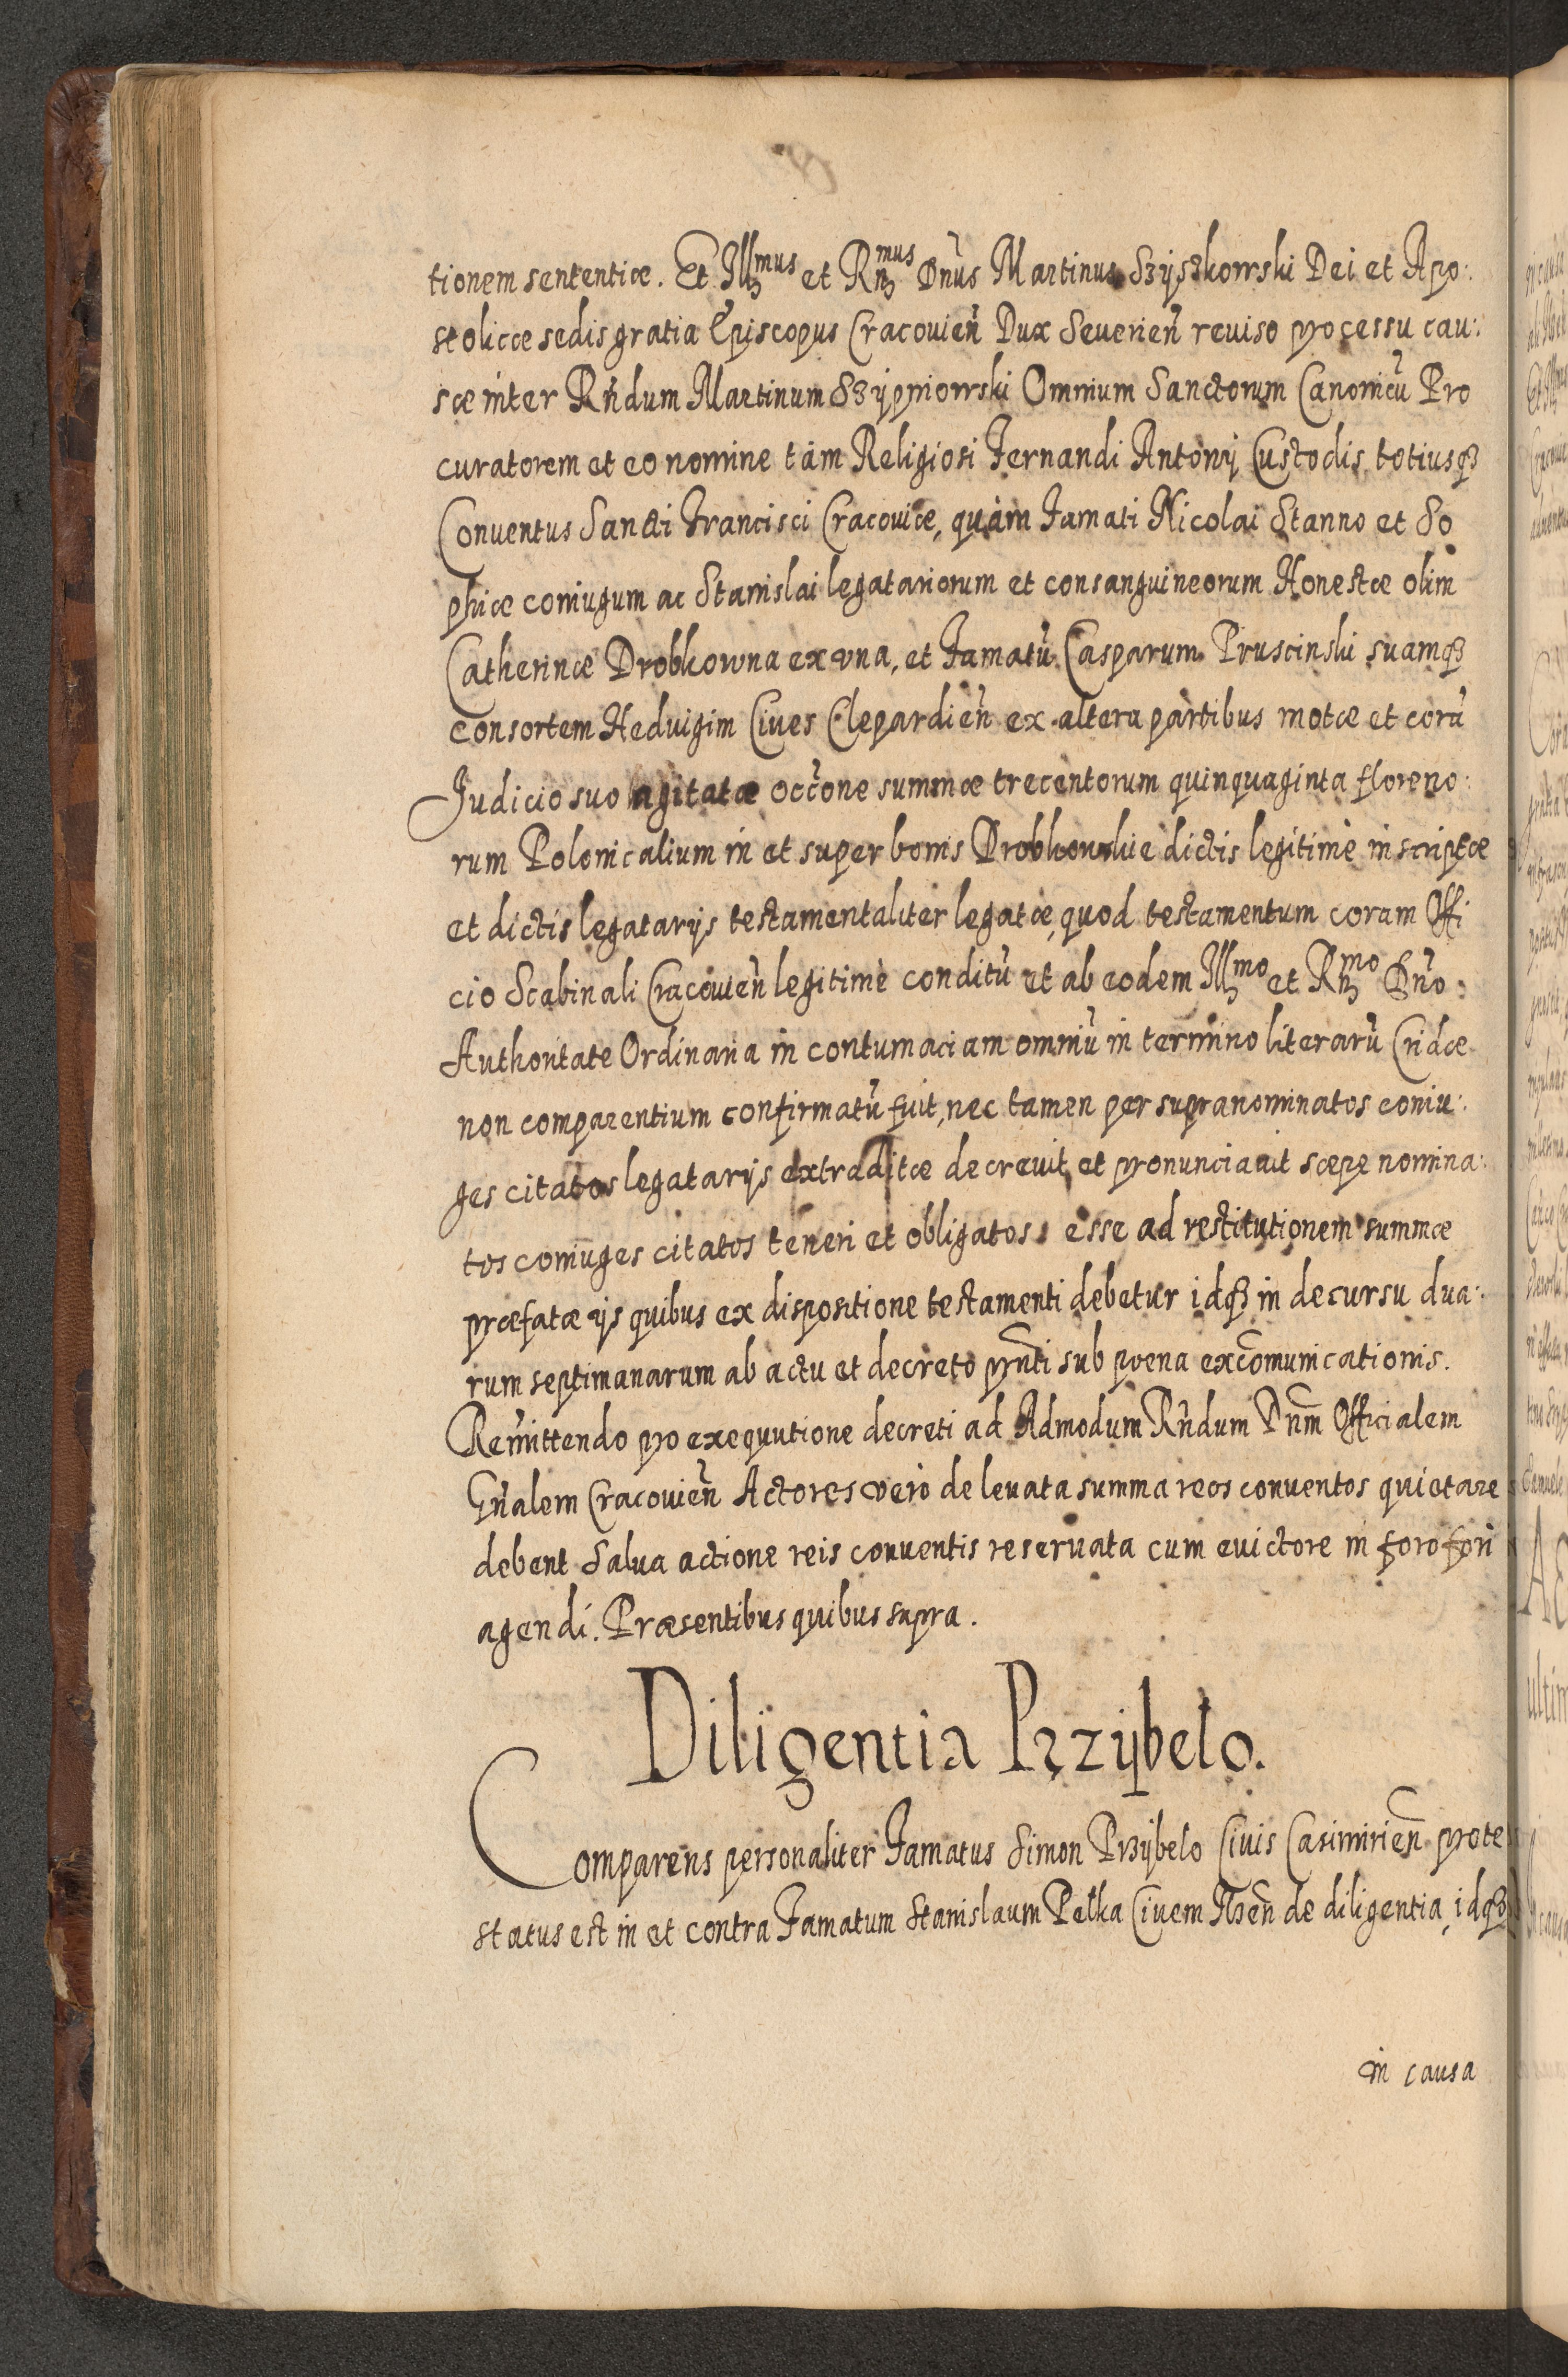 tionem sententiæ. Et Ill̃mus et Rm̃us Dn̄us Martinus Szÿszkowski Dei et Apo:
stolicæ sedis gratia Episcopus Cracouien̄ Dux Seuerien̄ reuiso processu cau:
sæ inter Rn̄dum Martinum Szÿpniowski Omnium Sanctorum Canonicū Pro
curatorem et eo nomine tàm Religiosi Fernandi Antonij Custodis totiusqȝ
Conuentus Sancti Francisci Cracouiæ, quàm Famati Nicolai Stanno et So
phiæ coniugum ac Stanislai legatariorum et consanguineorum Honestæ olim
Catherinæ Drobkowna ex vna, et Famatū Casparum Pruscinski suamqȝ
consortem Heduigim Ciues Clepardien̄ ex altera partibus motæ et corā
Judicio suo agitatæ occōne summæ trecentorum quinquaginta floreno:
rum Polonicalium in et super bonis Drobkowskie dictis legitimè inscriptæ
et dictis legatarijs testamentaliter legatæ, quod testamentum coram Offi
cio Scabinali Cracouien̄ legitimè conditū et ab eodem Ill̃mo et Rm̃o Dn̄o:
Authoritate Ordinaria in contumaciam omniū in termino literarū Cridæ
non comparentium confirmatū fuit, nec tamen per supranominatos coniu:
ges citatos legatarijs extraditæ decreuit et pronunciauit sæpe nomina:
tos coniuges citatos teneri et obligatos esse ad restitutionem summæ
præfatæ ijs quibus ex dispositione testamenti debetur idqȝ in decursu dua:
rum septimanarum ab actu et decreto pn̄ti sub poena excōmunicationis.
Remittendo pro exequutione decreti ad Admodum Rn̄dum Dn̄m Officialem
Gn̄alem Cracouien̄ Actores verò de leuata summa reos conuentos quietare
debent Salua actione reis conuentis reseruata cum euictore in foro fori
agendi. Præsentibus quibus supra.
Diligentia Przÿbelo.
Comparens personaliter Famatus Simon Przÿbelo Ciuis Casimirien̄ prote
status est in et contra Famatum Stanislaum Pelka Ciuem Ibien̄ de diligentia, idqȝ
in causa